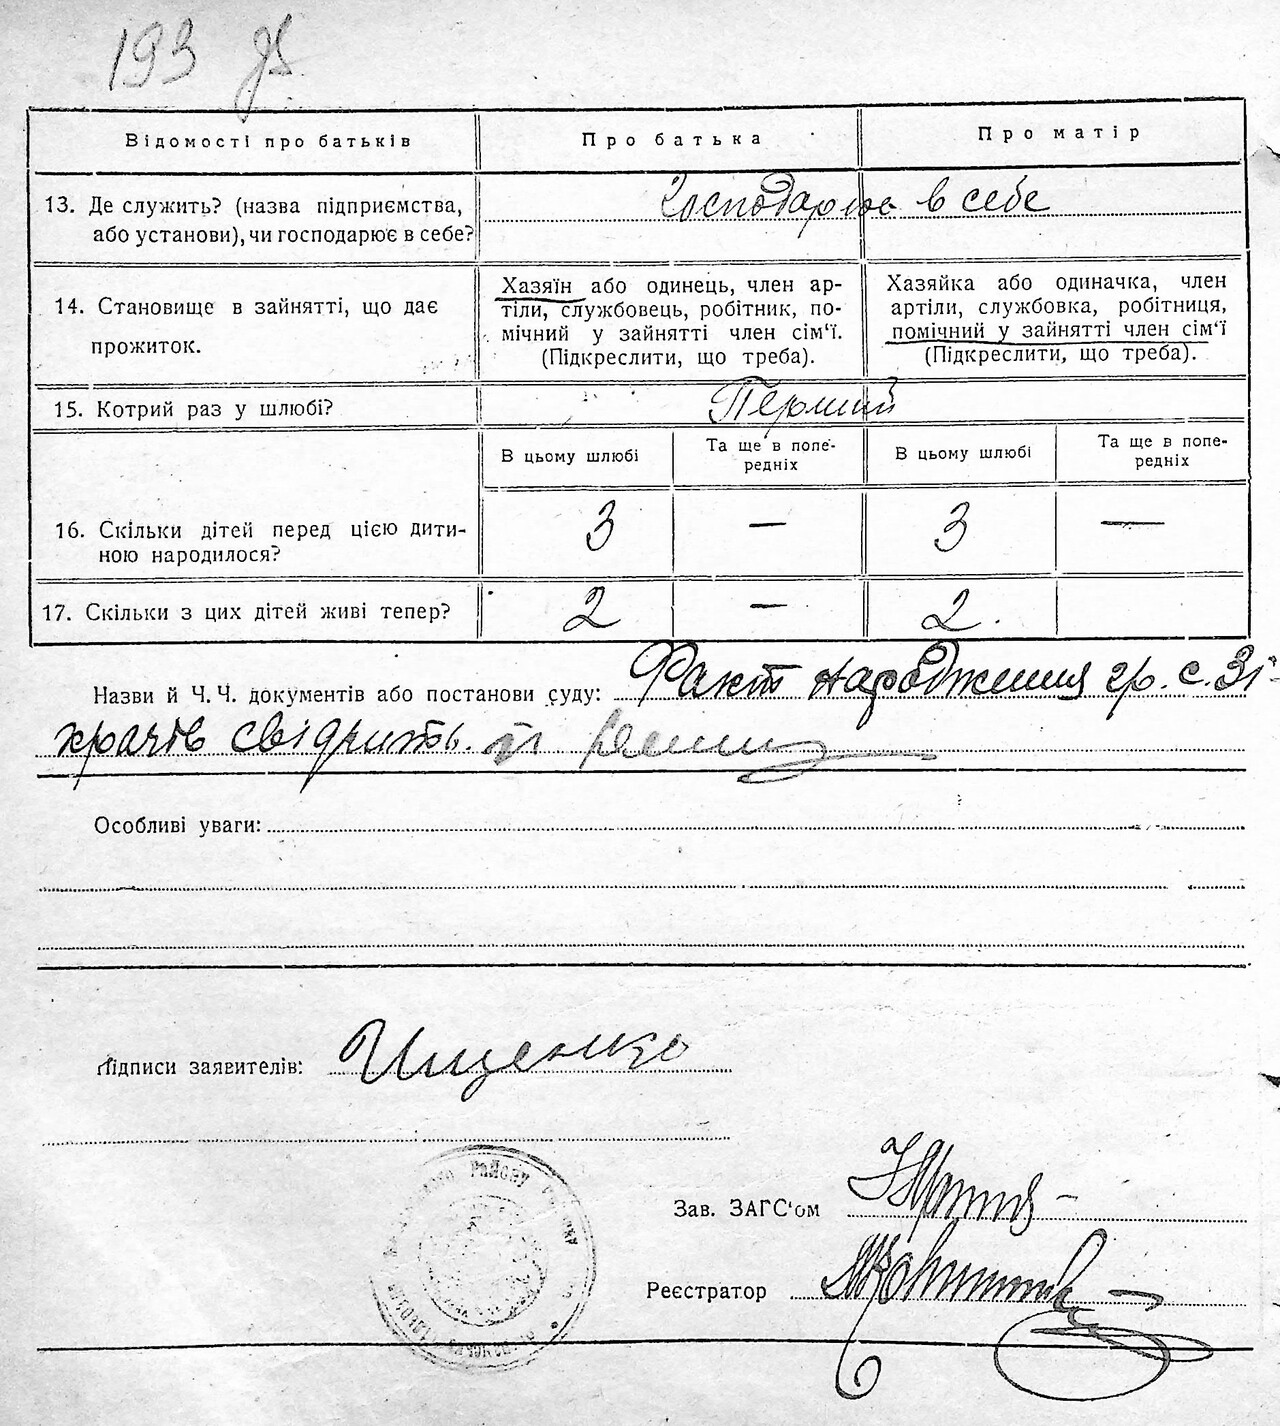 193
Відомості про батьків
Про батька
Про матір
13. Де служить? (назва підприємства,
або установи), чи господарює в себе?
Господарює в себе
14. Становище в зайнятті, що дає
прожиток.
Хазяїн або одинець, член ар-
тіли, службовець, робітник, по-
мічний у зайнятті член сім'ї.
(Підкреслити, що треба).
Хазяйка або одиначка, член
артіли, службовка, робітниця,
помічний у зайнятті член сім'ї
(Підкреслити, що треба).
15. Котрий раз у шлюбі?
Перший
В цьому шлюбі
Та ще в попе-
редніх
В цьому шлюбі
Та ще в попе-
редніх
16. Скільки дітей перед цією дити-
ною народилося?
3 — 3 —
17. Скільки з цих дітей живі тепер?
2 — 2.
Назви й Ч. Ч. документів або постанови суду: Факт народження гр. с. Зі-
храчів свідчить.
Особливі уваги:
Підписи заявителів: Ищенко
Району
Зав. ЗАГС'ом
Реєстратор